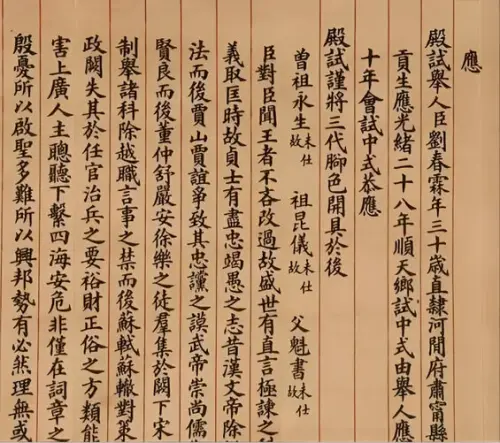 應
殿試舉人臣劉春霖年三十歲直隸河間府肅甯縣
貢生應光緒二十八年順天鄉試中式由舉人應
十年會試中式恭應
殿試謹將三代腳色開具於後
曾祖永生未仕故 祖昆儀未仕故 父魁書未仕故
臣對臣聞王者不吝改過故盛世有直言極諫之
義取匡時故貞士有盡忠竭愚之志昔漢文帝除
法而後賈山賈誼爭致其忠讜之謨武帝崇尚儒
賢良而後董仲舒嚴安徐樂之徒羣集於闕下宋
制舉諸科除越職言事之禁而後蘇軾蘇轍對策
政闕失其於任官治兵之要裕財正俗之方類能
害上廣人主聰聽下繫四海安危非僅在詞章之
殷憂所以啟聖多難所以興邦勢有必然理無或